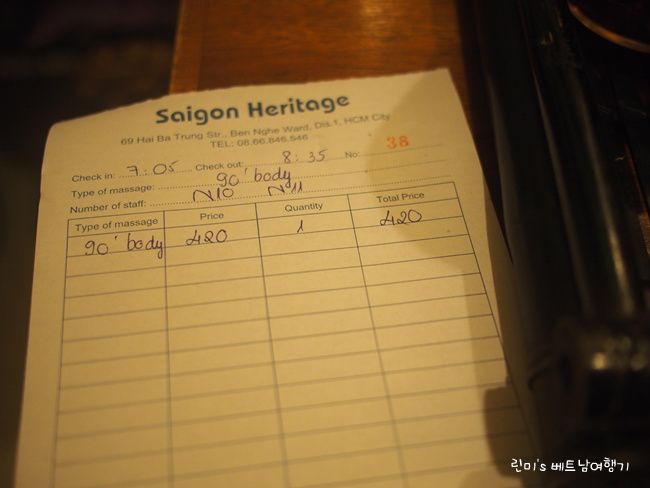 Saigon Heritage
69 Hai Ba Trung Str., Ben Nghe Ward, Dis.1, HCM City
TEL: 08.66.846.546
Check in: 7:05 Check out: 8:35 No: 38
Type of massage: 90' body
Number of staff: N10 N11
Type of massage Price Quantity Total Price
90' body 420 1 420
린미's 베트남여행기